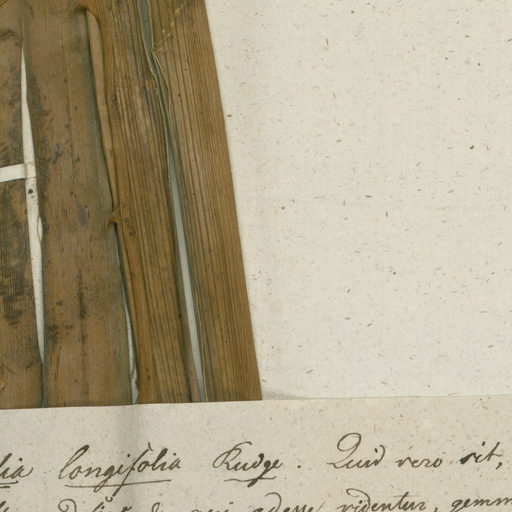 lia longifolia Rudge. Quid vero sit,
adesse videntur, gemm